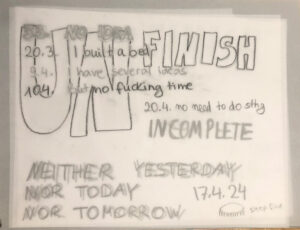 UN FINISH
NO IDEA
20.3. I built a bed
9.4. I have several ideas
10.4. but no fucking time
20.4. no need to do sthg
INCOMPLETE
NEITHER YESTERDAY
NOR TODAY
17.4.24
NOR TOMORROW